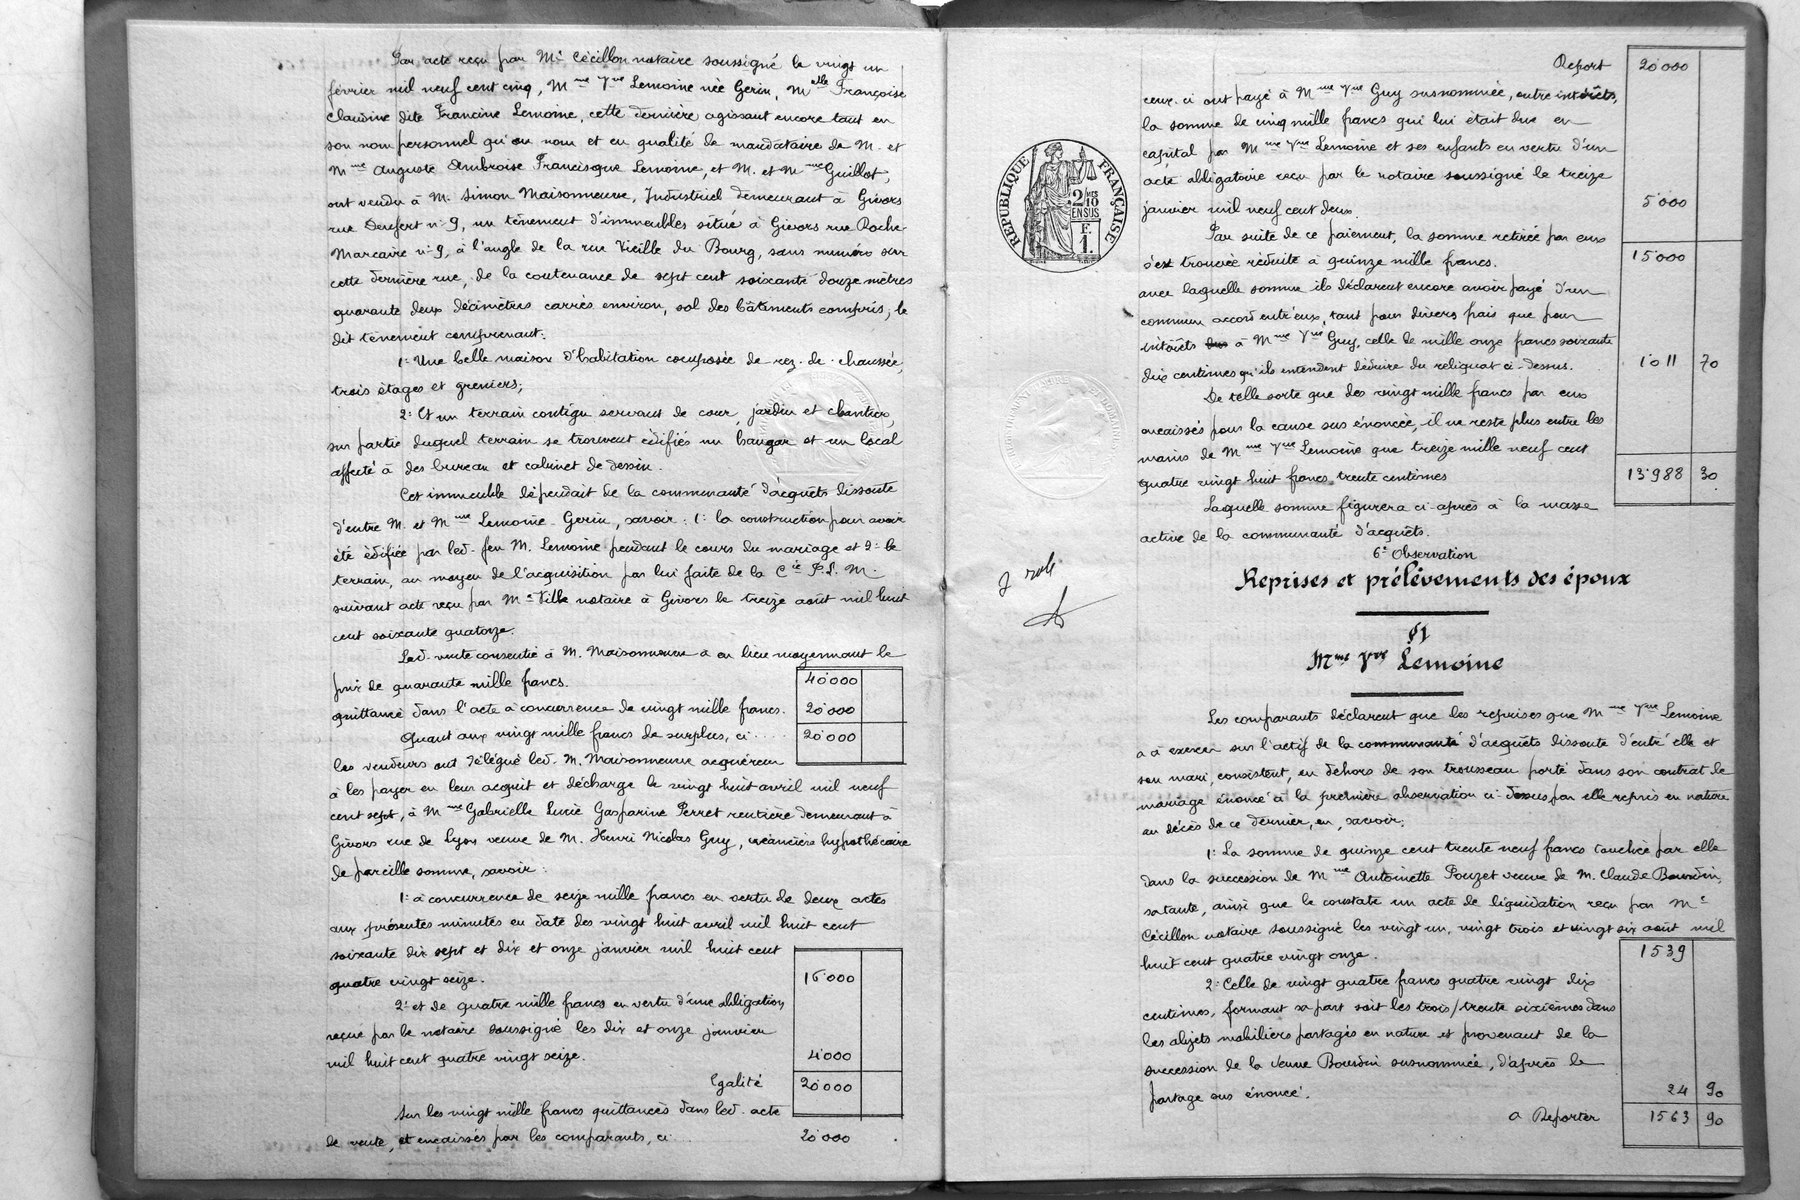 Par acte reçu par Me Cécillon notaire soussigné le vingt un
février mil neuf cent cinq, Mme Vve Lemoine née Gerin, Melle Françoise
Claudine dite Francine Lemoine, cette dernière agissant encore tant en
son nom personnel qu'au nom et en qualité de mandataire de M. et
Mme Auguste Ambroise Francisque Lemoine, et M. et Mme Guillot,
ont vendu à M. Simon Maisonneuve, Industriel demeurant à Givors
rue Denfert no 9, un tènement d'immeubles situé à Givors rue Roche
Marcaire no 9, à l'angle de la rue Vieille du Bourg, sans numéro sur
cette dernière rue, de la contenance de sept cent soixante douze mètres
quarante deux décimètres carrés environ, sol des bâtiments compris, le
dit tènement comprenant:
1o Une belle maison d'habitation composée de rez-de-chaussée,
trois étages et greniers;
2o Et un terrain contigu servant de cour, jardin et chantier,
sur partie duquel terrain se trouvent édifiés un hangar et un local
affecté à des bureau et cabinet de dessin.
Cet immeuble dépendait de la communauté d'acquêts dissoute
d'entre M. et Mme Lemoine-Gerin, savoir: 1o la construction pour avoir
été édifiée par led. feu M. Lemoine pendant le cours du mariage et 2o le
terrain, au moyen de l'acquisition par lui faite de la Cie P.L.M.
suivant acte reçu par Me Ville notaire à Givors le treize août mil huit
cent soixante quatorze.
Led. vente consentie à M. Maisonneuve a eu lieu moyennant le
prix de quarante mille francs. 40.000
quittancé dans l'acte à concurrence de vingt mille francs. 20.000
Quant aux vingt mille francs de surplus, ci .... 20.000
les vendeurs ont délégué led. M. Maisonneuve acquéreur
à les payer en leur acquit et décharge le vingt huit avril mil neuf
cent sept, à Mme Gabrielle Lucie Gasparine Perret rentière demeurant à
Givors rue de Lyon veuve de M. Henri Nicolas Guy, créancière hypothécaire
de pareille somme, savoir:
1o à concurrence de seize mille francs en vertu de deux actes
aux présentes minutes en date des vingt huit avril mil huit cent
soixante dix sept et dix et onze janvier mil huit cent
quatre vingt seize. 16.000
2o et de quatre mille francs en vertu d'une obligation
reçue par le notaire soussigné les dix et onze janvier
mil huit cent quatre vingt seize. 4.000
Egalité 20.000
Sur les vingt mille francs quittancés dans led. acte
de vente, et encaissés par les comparants, ci ... 20.000
Report 20.000
ceux-ci ont payé à Mme Vve Guy susnommée, outre intérêts,
la somme de cinq mille francs qui lui était due en
capital par Mme Vve Lemoine et ses enfants en vertu d'un
acte obligatoire reçu par le notaire soussigné le treize
janvier mil neuf cent deux. 5.000
Par suite de ce paiement, la somme retirée par eux
s'est trouvée réduite à quinze mille francs. 15.000
avec laquelle somme ils déclarent encore avoir payé d'un
commun accord entr'eux, tant pour divers frais que pour
intérêts à Mme Vve Guy, celle de mille onze francs soixante
dix centimes qu'ils entendent déduire du reliquat ci-dessus. 1.011 70
De telle sorte que des vingt mille francs par eux
encaissés pour la cause sus énoncée, il ne reste plus entre les
mains de Mme Vve Lemoine que treize mille neuf cent
quatre vingt huit francs trente centimes 13.988 30
Laquelle somme figurera ci-après à la masse
active de la communauté d'acquêts.
6o Observation
Reprises et prélèvements des époux
§1
Mme Vve Lemoine
Les comparants déclarent que les reprises que Mme Vve Lemoine
a à exercer sur l'actif de la communauté d'acquêts dissoute d'entre elle et
son mari, consistent, en dehors de son trousseau porté dans son contrat de
mariage énoncé à la première observation ci-dessus par elle repris en nature
au décès de ce dernier, en, savoir:
1o La somme de quinze cent trente neuf francs touchée par elle
dans la succession de Mme Antoinette Pouzet veuve de M. Claude Bourdin,
sa tante, ainsi que le constate un acte de liquidation reçu par Me
Cécillon notaire soussigné les vingt un, vingt trois et vingt six août mil
huit cent quatre vingt onze. 1539
2o Celle de vingt quatre francs quatre vingt dix
centimes, formant sa part soit les trois/trente sixièmes dans
les objets mobiliers partagés en nature et provenant de la
succession de la veuve Bourdin susnommée, d'après le
partage sus énoncé. 24 90
A Reporter 1563 90
RÉPUBLIQUE FRANÇAISE
2/10
EN SUS
F.
1.
2 role